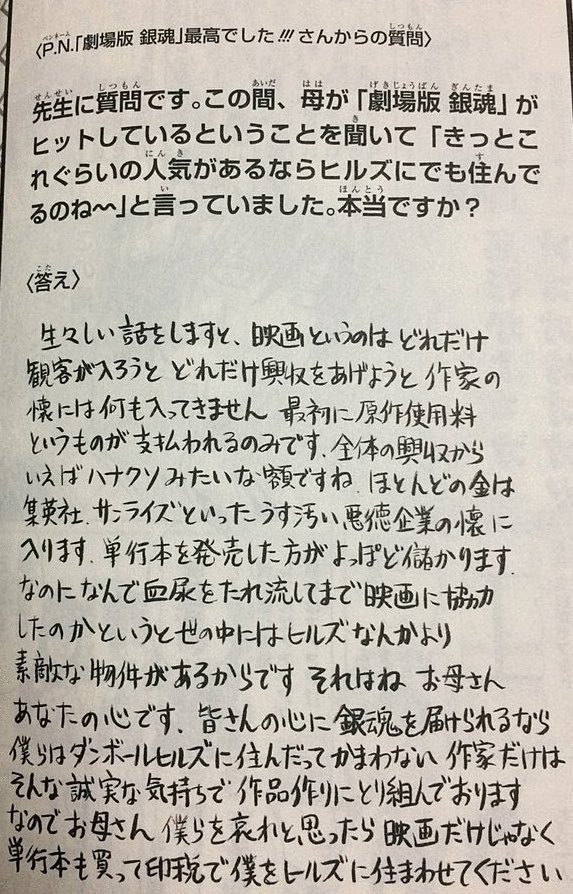 〈P.N.「劇場版 銀魂」最高でした!!! さんからの質問〉
先生に質問です。この間、母が「劇場版 銀魂」が
ヒットしているということを聞いて「きっとこ
れぐらいの人気があるならヒルズにでも住んで
るのね〜〜」と言っていました。本当ですか？
〈答え〉
生々しい話をしますと、映画というのは どれだけ
観客が入ろうと どれだけ興収をあげようと 作家の
懐には何も入ってきません 最初に原作使用料
というものが支払われるのみです、全体の興収から
いえばハナクソみたいな額ですね、ほとんどの金は
集英社、サンライズといったうす汚い悪徳企業の懐に
入ります、単行本を発売した方がよっぽど儲かります、
なのになんで血尿をたれ流してまで映画に協力
したのかというと世の中にはヒルズなんかより
素敵な物件があるからです それはね お母さん
あなたの心です、皆さんの心に 銀魂を届けられるなら
僕らはダンボールヒルズに住んだってかまわない 作家だけは
そんな誠実な気持ちで 作品作りにとり組んでおります
なのでお母さん 僕らを哀れと思ったら 映画だけじゃなく
単行本も買って印税で僕をヒルズに住まわせてください